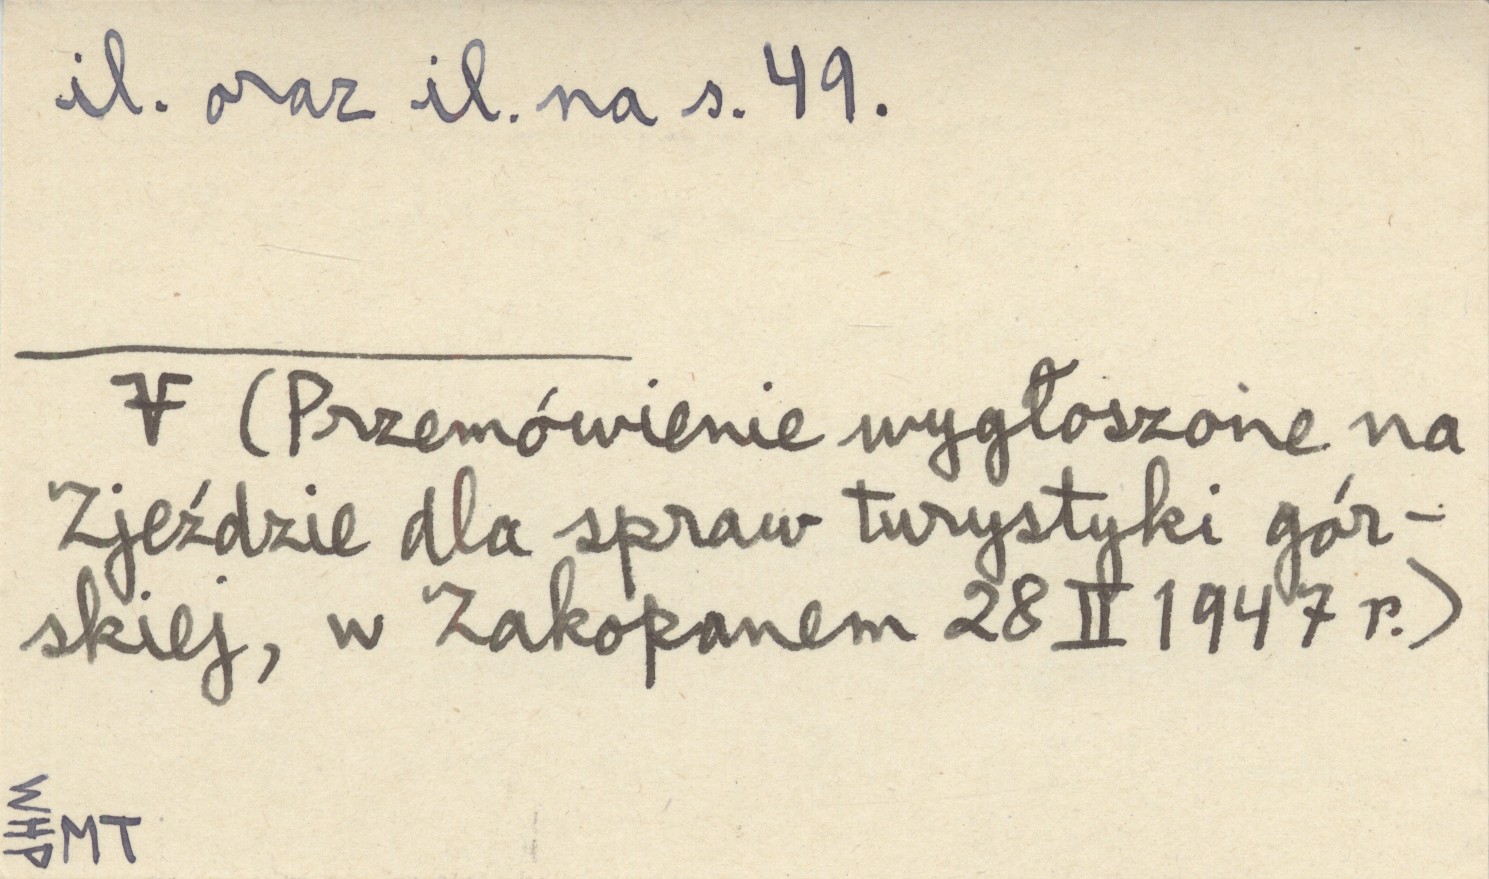 il. oraz il. na s. 49.
(Przemówienie wygłoszone na
Zjeździe dla spraw turystyki gór-
skiej, w Zakopanem 28 II 1947 r.)
WHP MT